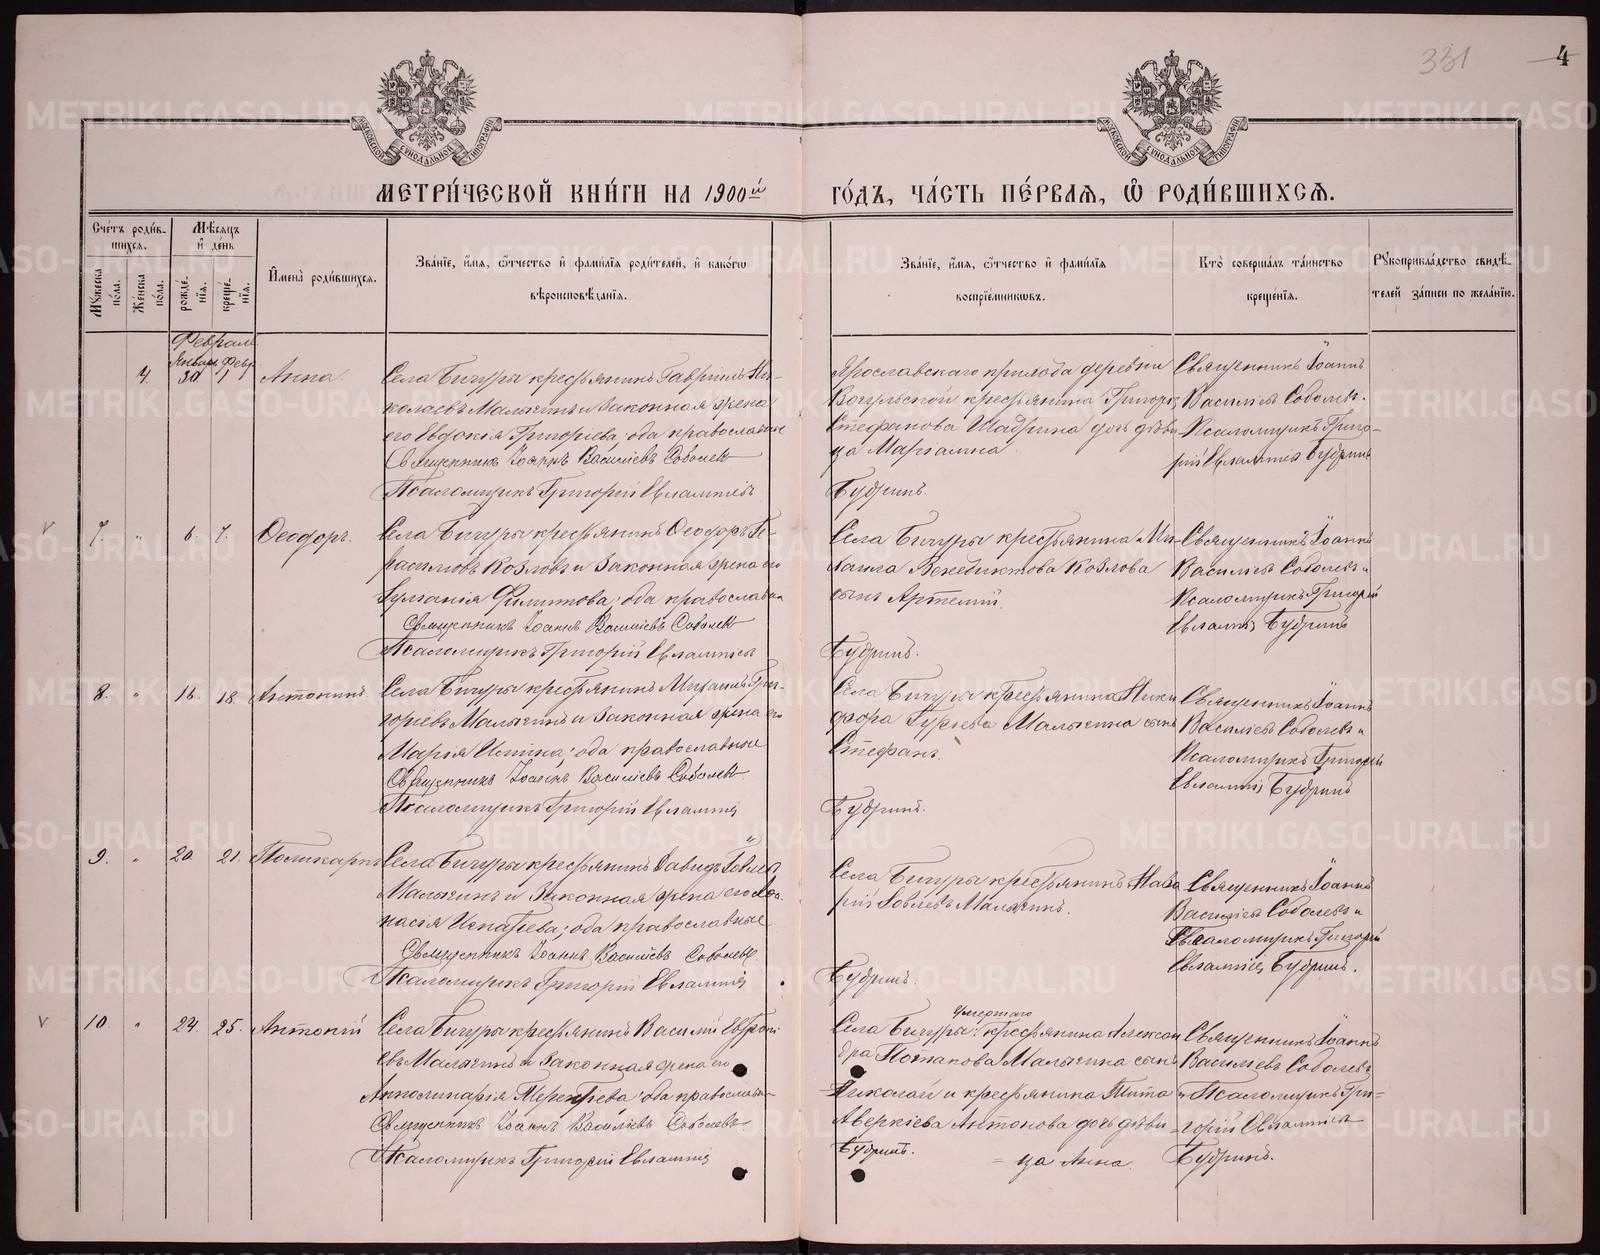 331
4
МОСКОВСКОЙ СѴНОДАЛЬНОЙ ТИПОГРАФІИ
МОСКОВСКОЙ СѴНОДАЛЬНОЙ ТИПОГРАФІИ
МЕТРИ́ЧЕСКОЙ КНИ́ГИ НА 1900й ГО́ДЪ, ЧА́СТЬ ПЕ́РВАѦ, Ѽ РОДИ́ВШИХСѦ.
Сче́тъ роди́в-
шихсѧ.
Мѣ́сѧцъ
и де́нь
Мꙋжеска по́ла.
Же́нска по́ла.
рожде́-нїѧ.
креще́-нїѧ.
И҆мена̀ роди́вшихсѧ.
Зва́нїе, и҆́мѧ, ѻ҆́тчество и҆ фами́лїѧ роди́телей, и҆ како́гѡ
вѣроисповѣ́данїѧ.
Зва́нїе, и҆́мѧ, ѻ҆́тчество и҆ фами́лїѧ
воспрїе́мникѡвъ.
Кто̀ соверша́лъ та́инство
креще́нїѧ.
Рꙋкоприкла́дство свидѣ́-
телей за́писи по жела́нїю.
Февраля
Январь Февр
4. 30 1 Анна.
Села Бичуры крестьянинъ Гавріилъ Ни-
колаевъ Малыгинъ и Законная жена
его Евдокія Григоріева; оба православные
Священникъ Іоаннъ Василіевъ Соболевъ
Псаломщикъ Григорій Евлампіевъ
Ярославскаго прихода деревни
крестьянина Григорія
Стефанова Шадрина дочь дѣви-
ца Маріамна.
Бударинъ.
Священникъ Іоаннъ
Василіевъ Соболевъ.
Псаломщикъ Григо-
рій Евлампіевъ
7. " 6. 7. Ѳеодоръ.
Села Бичуры крестьянинъ Ѳеодоръ Ге-
расимовъ Козловъ и Законная жена его
Филипова; оба православные
Священникъ Іоаннъ Василіевъ Соболевъ
Псаломщикъ Григорій Евлампіевъ
Села Бичуры крестьянина Ми-
хаила Венедиктова Козлова
сынъ Артемій.
Священникъ Іоаннъ
Василіевъ Соболевъ и
Псаломщикъ Григорій
8. " 16. 18. Антонинъ.
Села Бичуры крестьянинъ Михаилъ Гри-
горіевъ Малыгинъ и Законная жена его
Марія; оба православные
Священникъ Іоаннъ Василіевъ Соболевъ
Псаломщикъ Григорій Евлампіевъ
Села Бичуры крестьянина Ники
фора Гурьева Малыгина сынъ
Стефанъ.
Священникъ Іоаннъ
Василіевъ Соболевъ и
Псаломщикъ Григорій
9. " 20. 21. Поликарпъ
Села Бичуры крестьянинъ Давидъ Іовлевъ
Малыгинъ и Законная жена его Аѳа-
насія Игнатіева; оба православные
Священникъ Іоаннъ Василіевъ Соболевъ.
Псаломщикъ Григорій Евлампіевъ
Села Бичуры крестьянинъ Наза
рій Іовлевъ Малыгинъ.
Священникъ Іоаннъ
Василіевъ Соболевъ и
Псаломщикъ Григорій
10. " 24. 25. Антоній
Села Бичуры крестьянинъ Василій
евъ Малыгинъ и Законная жена его
Апполинарія Терентіева; оба православные
Священникъ Іоаннъ Василіевъ Соболевъ
Псаломщикъ Григорій Евлампіевъ
умершаго
Села Бичуры крестьянина Алексан
дра Потапова Малыгина сынъ
Николай и крестьянина Тита
Аверкіева Антонова дочь дѣви-
ца Анна.
Священникъ Іоаннъ
Василіевъ Соболевъ
и Псаломщикъ Гри-
горій Евлампіевъ
METRIKI.GASO-URAL.RU